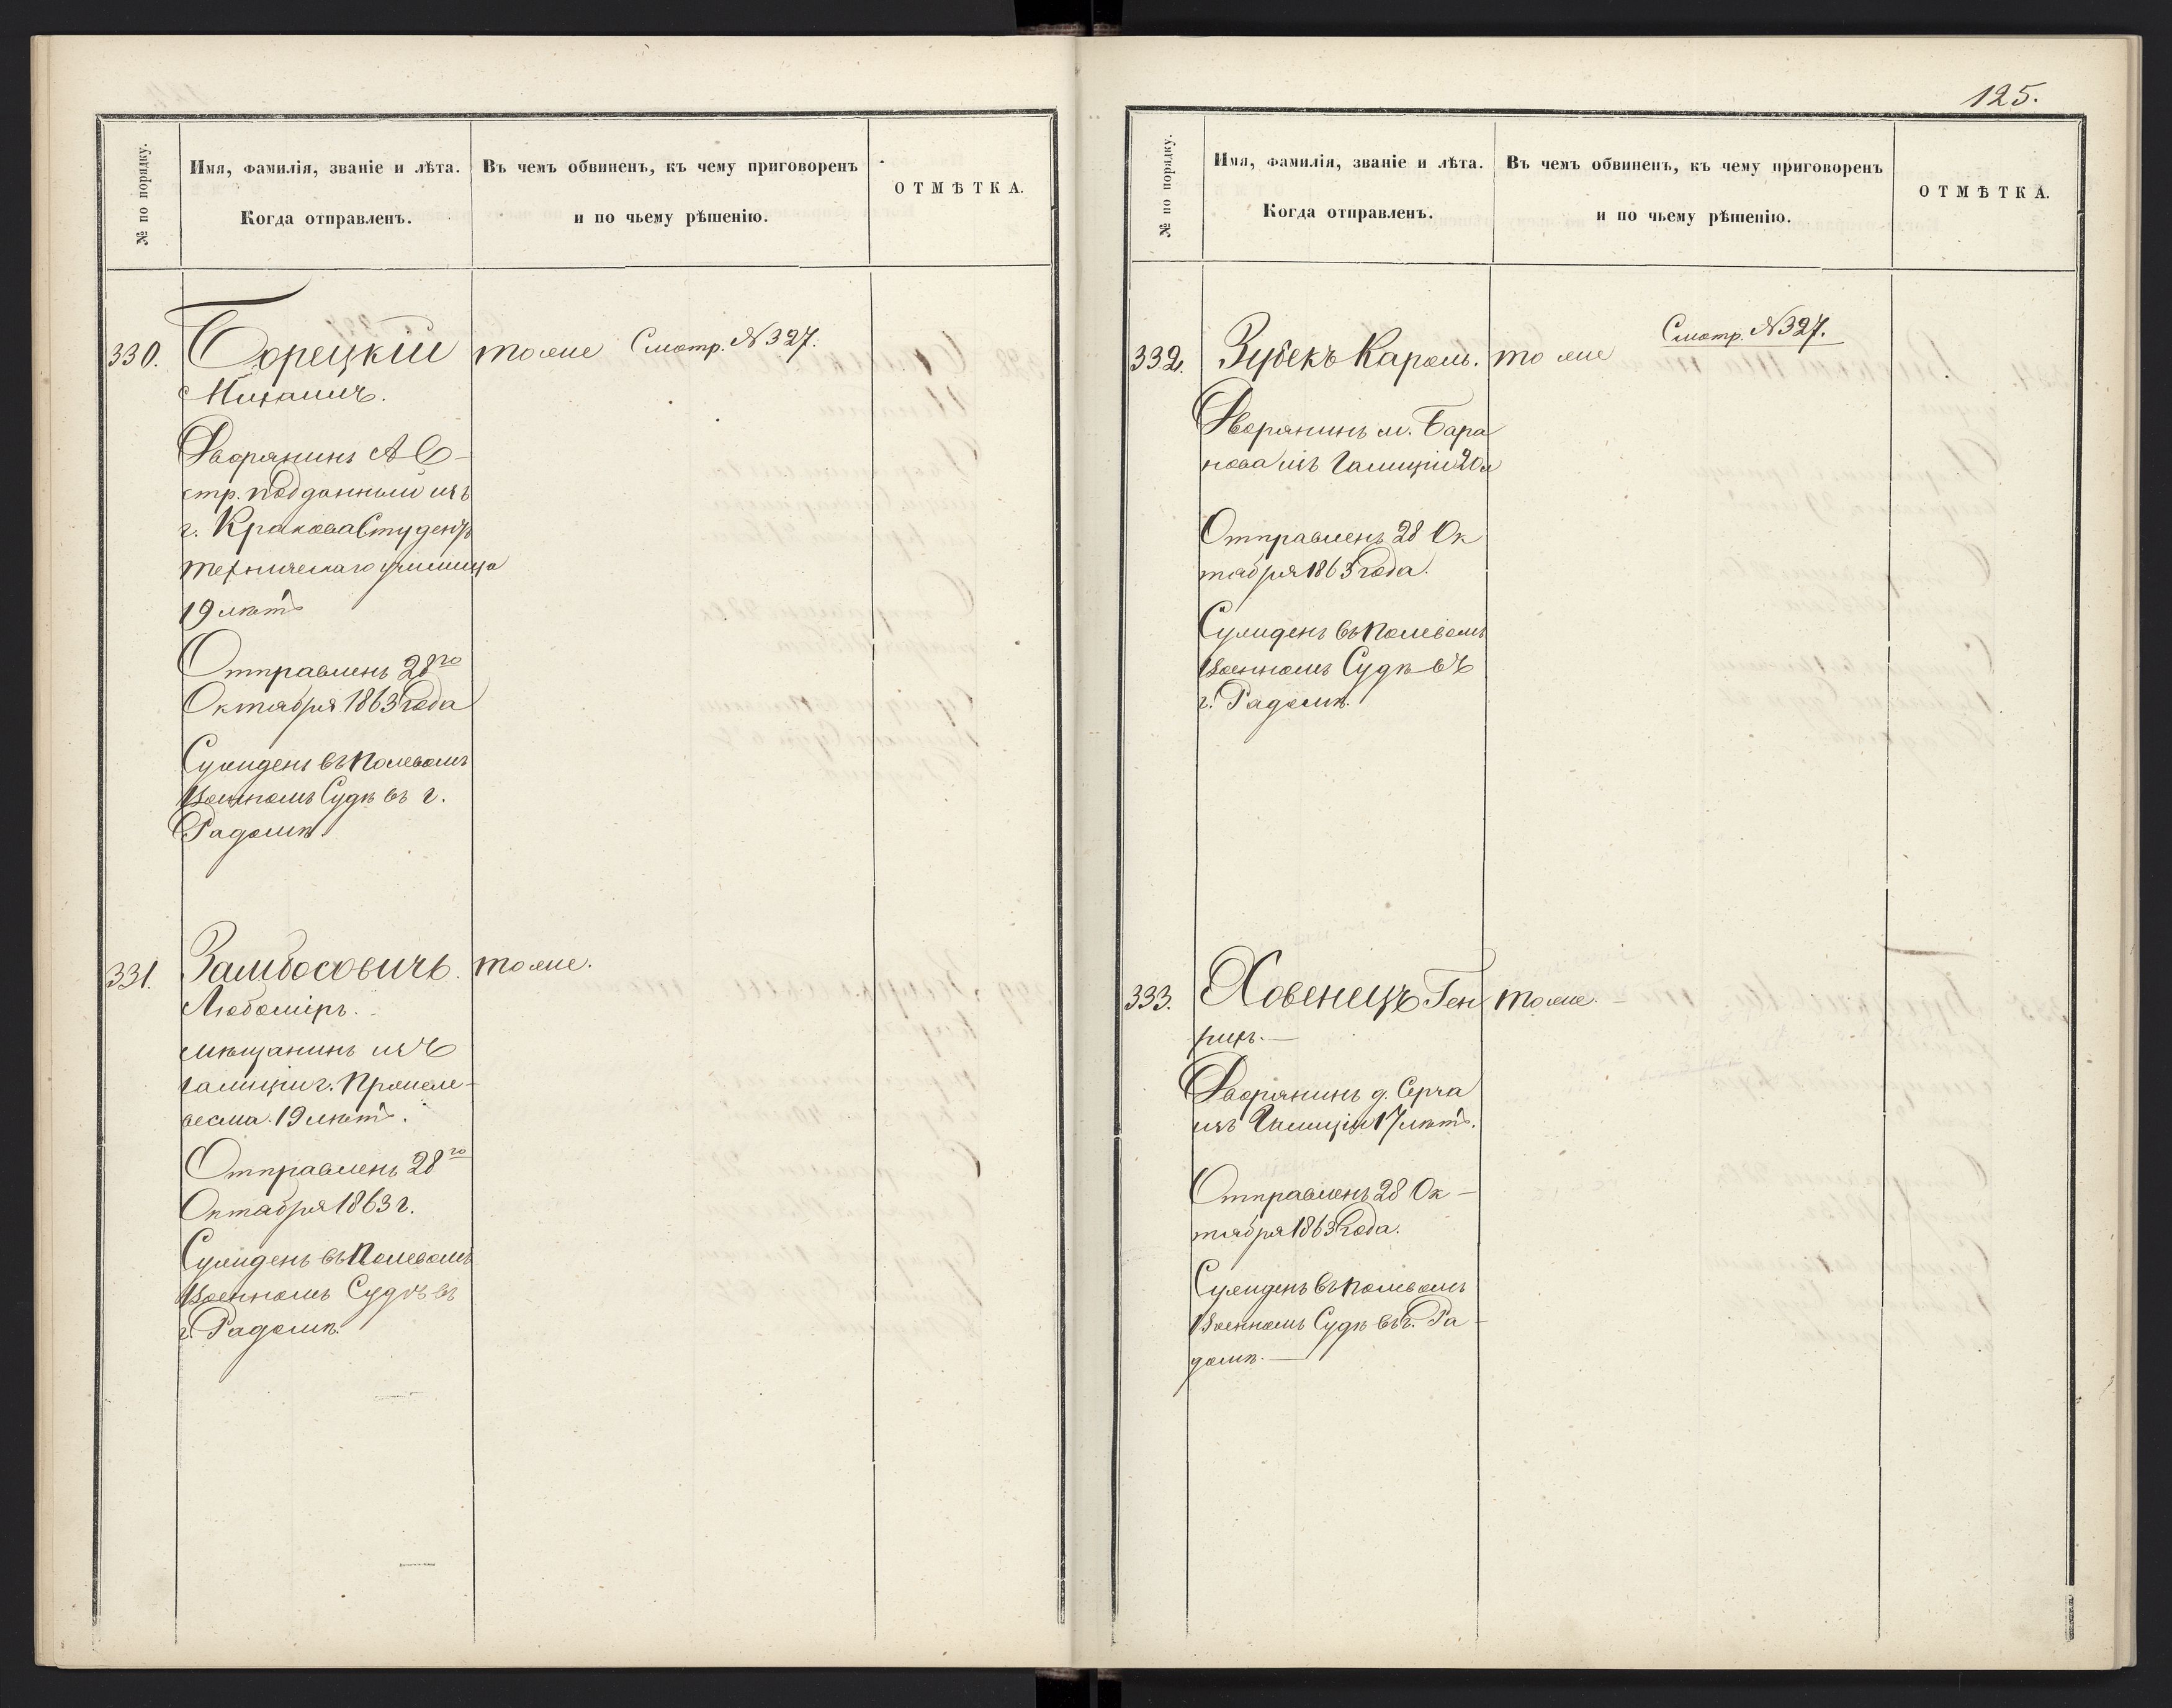 № по порядку.
Имя, фамилія, званіе и лѣта.
Когда отправленъ.
Въ чемъ обвиненъ, къ чему приговоренъ
и по чьему рѣшенію.
ОТМѢТКА.
330. Борецкій тоже Смотр. № 327.
Михаилъ.
Дворянинъ Ав-
стр. подданный изъ
г. Кракова Студентъ
техническаго училища
19 лѣтъ
Отправленъ 28го
Октября 1863 года
Сужденъ въ Полевомъ
Военномъ Судѣ въ г.
Радомѣ.
331. Замбосовичъ. тоже.
Любоміръ.
мѣщанинъ изъ
Галиціи г.
19 лѣтъ.
Отправленъ 28го
Октября 1863 г.
Сужденъ въ Полевомъ
Военномъ Судѣ въ
г. Радомѣ.
125.
№ по порядку.
Имя, фамилія, званіе и лѣта.
Когда отправленъ.
Въ чемъ обвиненъ, къ чему приговоренъ
и по чьему рѣшенію.
ОТМѢТКА.
Смотр. № 327.
332. Зубекъ Кароль. тоже
Дворянинъ м. Бара
нова изъ Галиціи 20 л
Отправленъ 28 Ок
тября 1863 года.
Сужденъ въ Полевомъ
Военномъ Судѣ въ
г. Радомѣ.
333. Ховенецъ Ген тоже.
рихъ.
Дворянинъ д. Серча
изъ Галиціи 17 лѣтъ.
Отправленъ 28 Ок-
тября 1863 года.
Сужденъ въ Полевомъ
Военномъ Судѣ въ г. Ра-
домѣ.